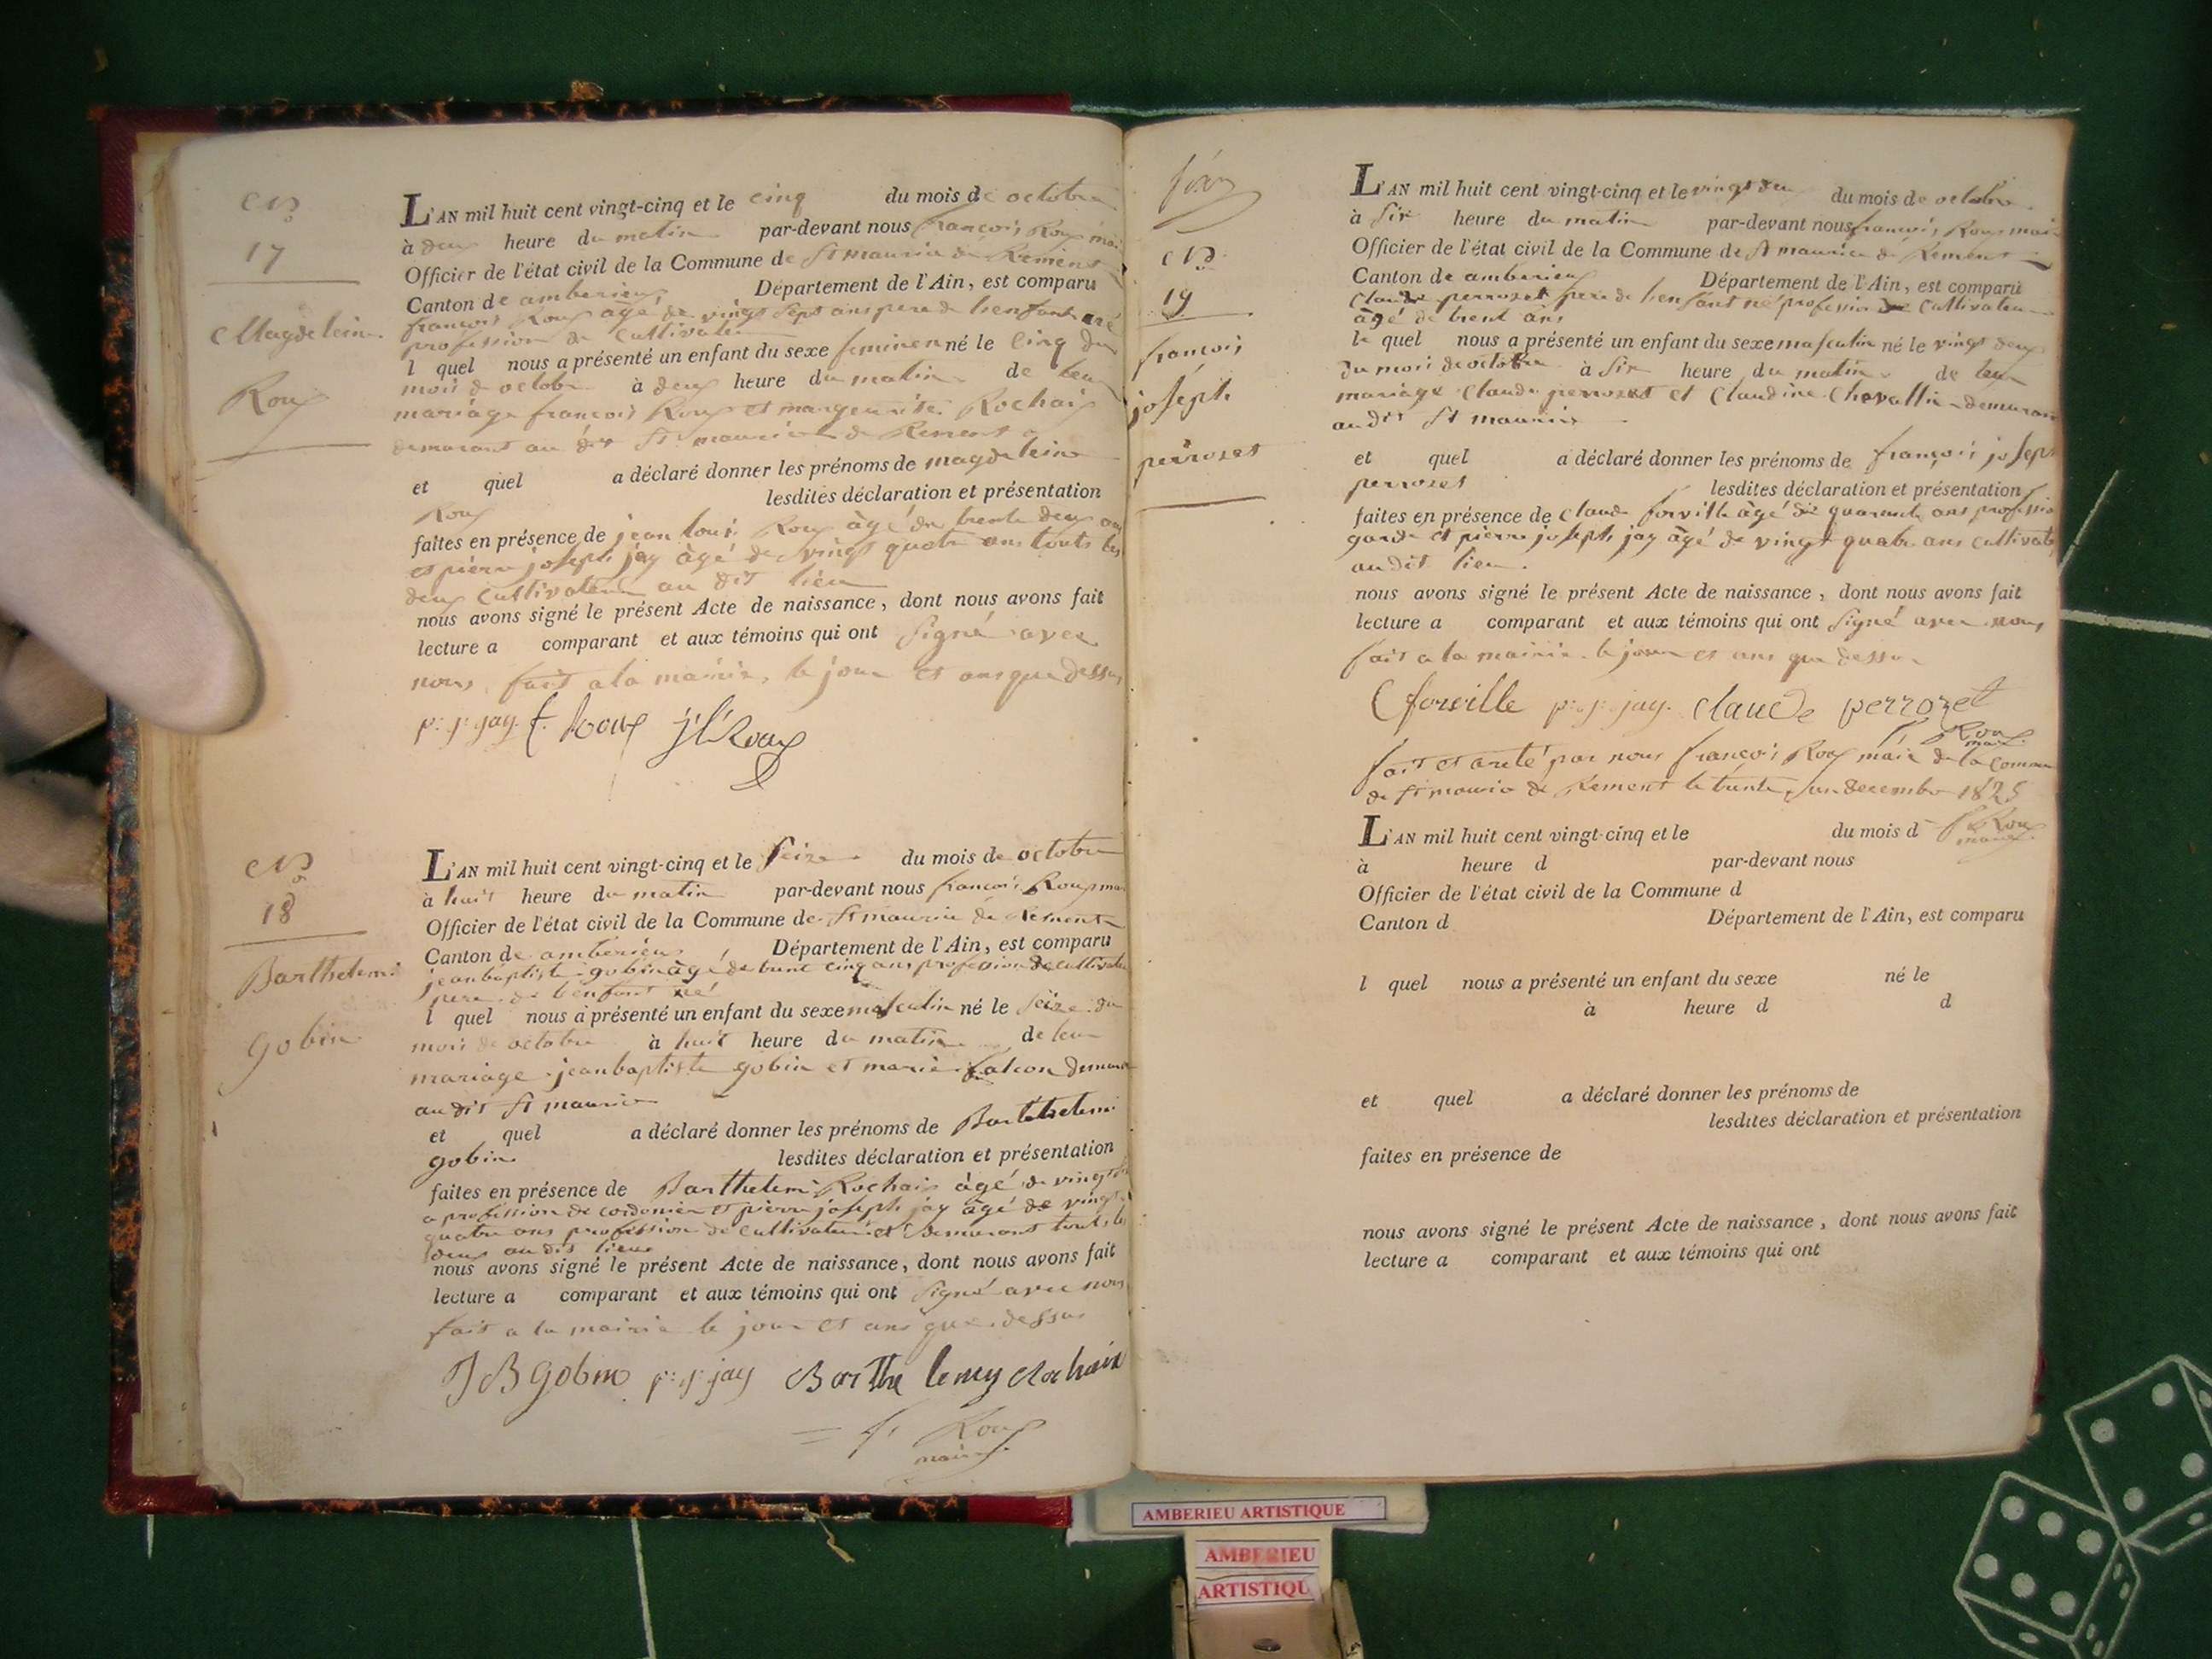 No
17
Magdeleine
Roux
L'AN mil huit cent vingt-cinq et le cinq du mois de octobre
à deux heure du matin par-devant nous françois Roux mai
Officier de l'état civil de la Commune de St maurice de Rement
Canton de amberieux Département de l'Ain, est comparu
françois Roux âgé de vingt sept ans pere de lenfant né
profession de cultivateur
l quel nous a présenté un enfant du sexe feminen né le cinq du
mois de octobre à deux heure du matin de leur
mariage françois Roux et margeurite Rochaix
demurant au dit St maurice de Rement
et quel a déclaré donner les prénoms de magdeleine
Roux lesdites déclaration et présentation
faites en présence de jean loui Roux âgé de trente deux ans
et pierre joseph jay âgé de vingt quatre ans touts les
deux cultivateur au dit lieu
nous avons signé le présent Acte de naissance, dont nous avons fait
lecture a comparant et aux témoins qui ont signé avec
nous, fait a la mairie, le jour et ans que dessus
p: j: jay. f. Roux j l Roux
No
18
Barthelemi
gobin
L'AN mil huit cent vingt-cinq et le seize du mois de octobre
à huit heure du matin par-devant nous francois Roux mai
Officier de l'état civil de la Commune de St maurice de Rement
Canton de amberieux, Département de l'Ain, est comparu
jean baptiste gobin âgé de trent cinq ans profession de cultivateu
pere de lenfant né
l quel nous a présenté un enfant du sexe masculin né le seize du
mois de octobre à huit heure du matin de leur
mariage jean baptiste gobin et marie falcon demurant
au dit St maurice
et quel a déclaré donner les prénoms de Barthelemi
gobin lesdites déclaration et présentation
faites en présence de Barthelemi Rochaix âgé de vingt
profession de cordonier et pierre joseph jay âgé de vingt
quatre ans profession de cultivateur et demurant touts les
deux au dit lieux
nous avons signé le présent Acte de naissance, dont nous avons fait
lecture a comparant et aux témoins qui ont signé avec nous
fait a la mairie le jour et ans que dessus
J B gobin p: j: jay Barthelemy Rochaix
f. Roux
maire
No
19
francois
joseph
perrozet
L'AN mil huit cent vingt-cinq et le vingt deux du mois de octobre
à six heure du matin par-devant nous francois Roux mair
Officier de l'état civil de la Commune de St maurice de Rement
Canton de amberieux Département de l'Ain, est comparu
Claude perrozet pere de lenfant né profession de cultivateur
âgé de trent ans
le quel nous a présenté un enfant du sexe masculin né le vingt deux
du mois de octobre à six heure du matin de leur
mariage Claude perrozet et Claudine Chevallier demurant
au dit St maurice
et quel a déclaré donner les prénoms de françois joseph
perrozet lesdites déclaration et présentation
faites en présence de Claude forville âgé de quarante ans profession
garde et pierre joseph jay âgé de vingt quatre ans cultivate
au dit lieu.
nous avons signé le présent Acte de naissance, dont nous avons fait
lecture a comparant et aux témoins qui ont signé avec nous
fait a la mairie le jour et ans que dessus
C forville p: j: jay. claude perrozet
f. Roux
maire
fait et areté par nous francois Roux maire de la Comune
de St mauric de Rement le trente un decembre 1825
f Roux
maire
L'AN mil huit cent vingt-cinq et le du mois d
à heure d par-devant nous
Officier de l'état civil de la Commune d
Canton d Département de l'Ain, est comparu
l quel nous a présenté un enfant du sexe né le
à heure d d
et quel a déclaré donner les prénoms de
lesdites déclaration et présentation
faites en présence de
nous avons signé le présent Acte de naissance, dont nous avons fait
lecture a comparant et aux témoins qui ont
AMBERIEU ARTISTIQUE
AMBERIEU
ARTISTIQU